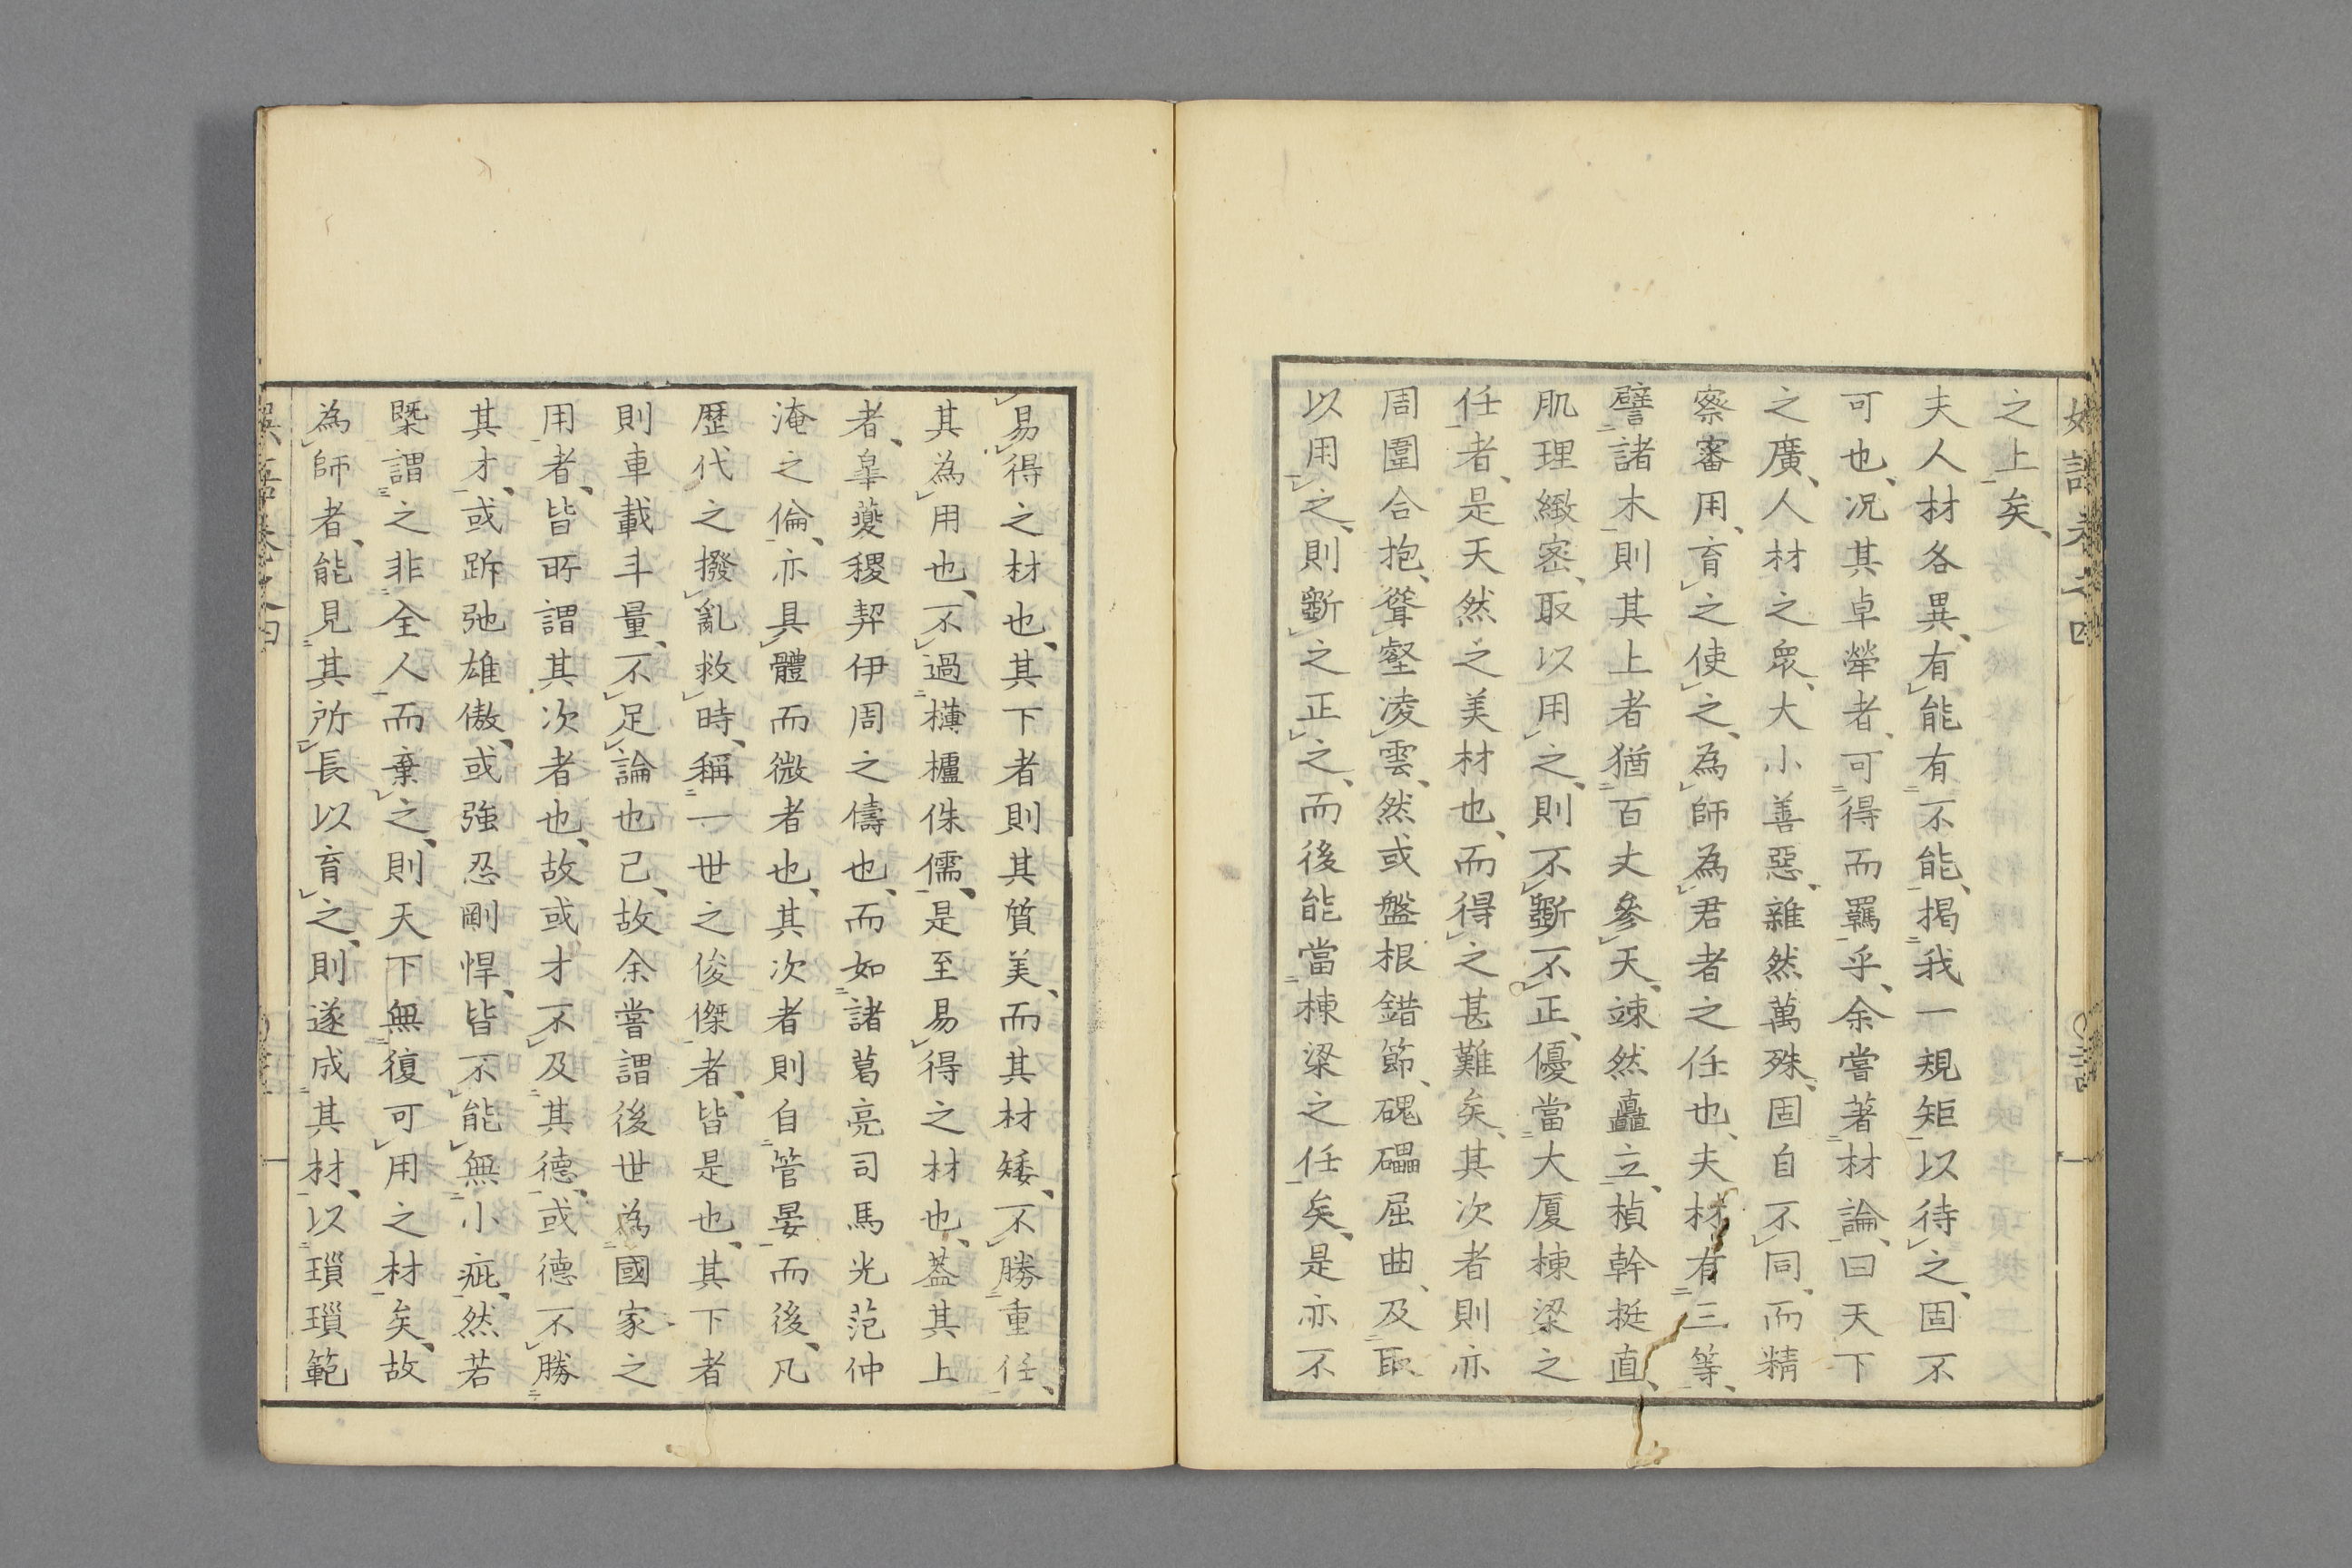 之上矣、
夫人材各異、有能有不能、揭我一規矩以待之、固不
可也、況其卓犖者、可得而羈乎、余嘗著材論、曰天下
之廣、人材之衆、大小善惡、雜然萬殊、固自不同、而精
察審用、育之使之、為師為君者之任也、夫材有三等、
譬諸木則其上者猶百丈參天、竦然矗立、楨幹挺直、
肌理緻密、取以用之、則不斲不正、優當大厦棟梁之
任者、是天然之美材也、而得之甚難矣、其次者則亦
周圍合抱、聳壑凌雲、然或盤根錯節、磈礧屈曲、及取
以用之、則斲之正之、而後能當棟梁之任矣、是亦不
易得之材也、其下者則其質美、而其材矮、不勝重任、
其為用也、不過欂櫨侏儒、是至易得之材也、蓋其上
者、皐夔稷契伊周之儔也、而如諸葛亮司馬光范仲
淹之倫、亦具體而微者也、其次者則自管晏而後、凡
歷代之撥亂救時、稱一世之俊傑者、皆是也、其下者
則車載斗量、不足論也已、故余嘗謂後世為國家之
用者、皆所謂其次者也、故或才不及其德、或德不勝
其才、或跅弛雄傲、或強忍剛悍、皆不能無小疵、然若
槩謂之非全人而棄之、則天下無復可用之材矣、故
為師者、能見其所長以育之、則遂成其材、以瑣瑣範